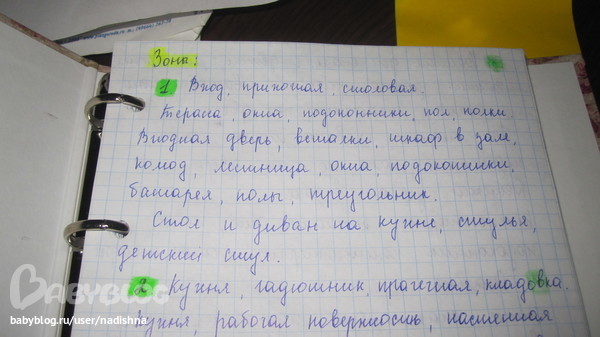 Зоны:
1. Вход, прихожая, столовая.
Тераса, окна, подоконники, пол, полки.
Входная дверь, вешалки, шкаф в зале,
комод, лестница, окна, подоконники,
батарея, полы, треугольник.
Стол и диван на кухне, стулья,
детский стул.
2 Кухня, гадюшник, прачечная, кладовка.
Кухня, рабочая поверхность, настенная
BABYBLOG
babyblog.ru/user/nadishna